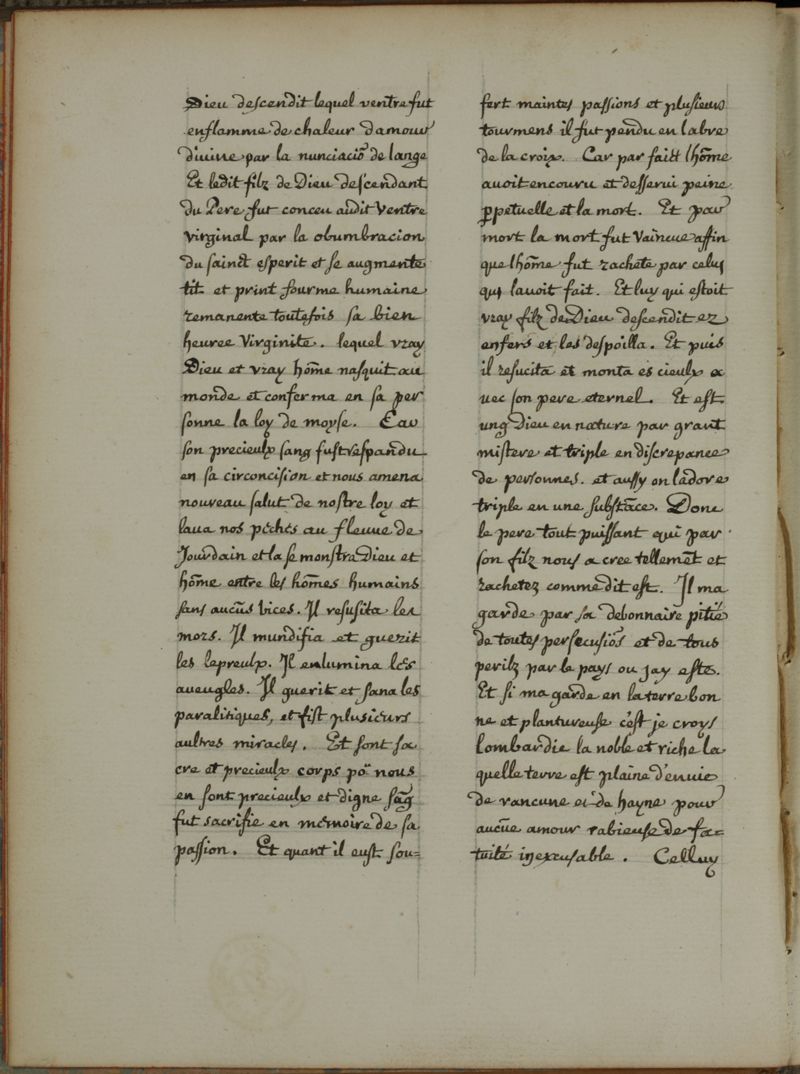 Dieu descendit lequel ventre fut
enflamme de chaleur damour
diuine par la nunciaciõ de lange
Et ledit filz de Dieu descendant
du Pere fut conceu audit Ventre
virginal par la obumbracion
du sainct esperit et se augmente
tit et print fourme humaine
remanente toutefois sa bien
heuree Virginite. lequel vray
Dieu et vray hõme nasquit au
monde et conferma en sa per
sonne la loy de moyse. Car
son precieulx sang fust respandu
en sa circoncision et nous amena
nouveau salut de nostre loy et
laua nos pechés au fleuue de
Jourdain et la se monstra Dieu et
hõme entre les hõmes humains
sans aucũs vices. Il resusita les
mors. Il mundifia et guerit
les lepreulx. Il enlumina les
aueugles. Il guerit et sana les
paralitiques, et fist plusieurs
aultres miracles. Et sont sa
cre et precieulx corps po^r nous
en sont precieulx et digne sãg
fut sacrifie en memoire de sa
passion. Et quant il eust sou=
fert maintes passions et plusieurs
tourmens il fut pendu en labre
de la croix. Car par faict lhõme
auoit encouru et desserui peine
ꝑpetuelle et la mort. Et par
mort la mort fut Vaincue affin
que lhõme fut rachete par celuy
quj lauoit fait. Et luy qui estoit
vray filz de Dieu descendit ez
enfers et les despoilla. Et puis
il resucita et monta es cieulx a
uec son pere eternel. Et est
ung Dieu en nature par grant
mistere et triple en discrepance
de personnes. et aussy on ladore
triple en une substãce. Donc
le pere tout puissant qui par
son filz nous a cree tellemẽt et
rachetez comme dit est. Il ma
garde par sa debonnaire pitié
de toutes persecusiõs et de tous
perilz par le pays ou jay este.
Et si ma garde en la terre bon
ne et plantureuse cest je croys
Lombardie la noble et riche la
quelle terre est plaine d'enuie
de rancune et de hayne pour
aucũe amour rabieuse de fa=
tuité inexcusable. Celluy